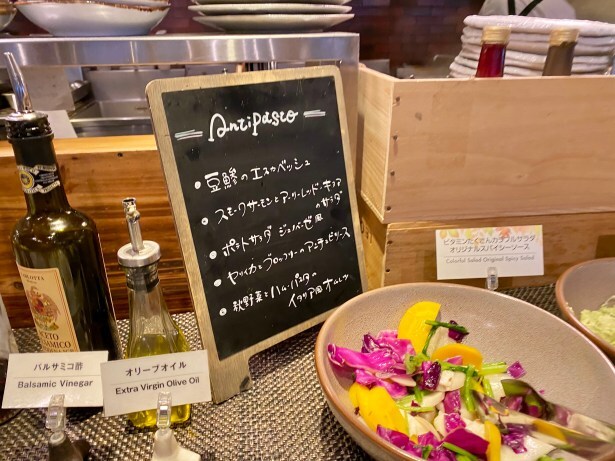 Antipasto
• 豆鯵のエスカベッシュ
• スモークサーモンとアーリーレッド・キヌア
のサラダ
• ポテトサラダ ジェノベーゼ風
• ヤリイカとブロッコリーのアンチョビソース
• 秋野菜とハム・パスタの
イタリア風オムレツ
ビタミンたくさんカラフルサラダ
オリジナルスパイシーソース
Colorful Salad Original Spicy Salad
バルサミコ酢
Balsamic Vinegar
オリーブオイル
Extra Virgin Olive Oil